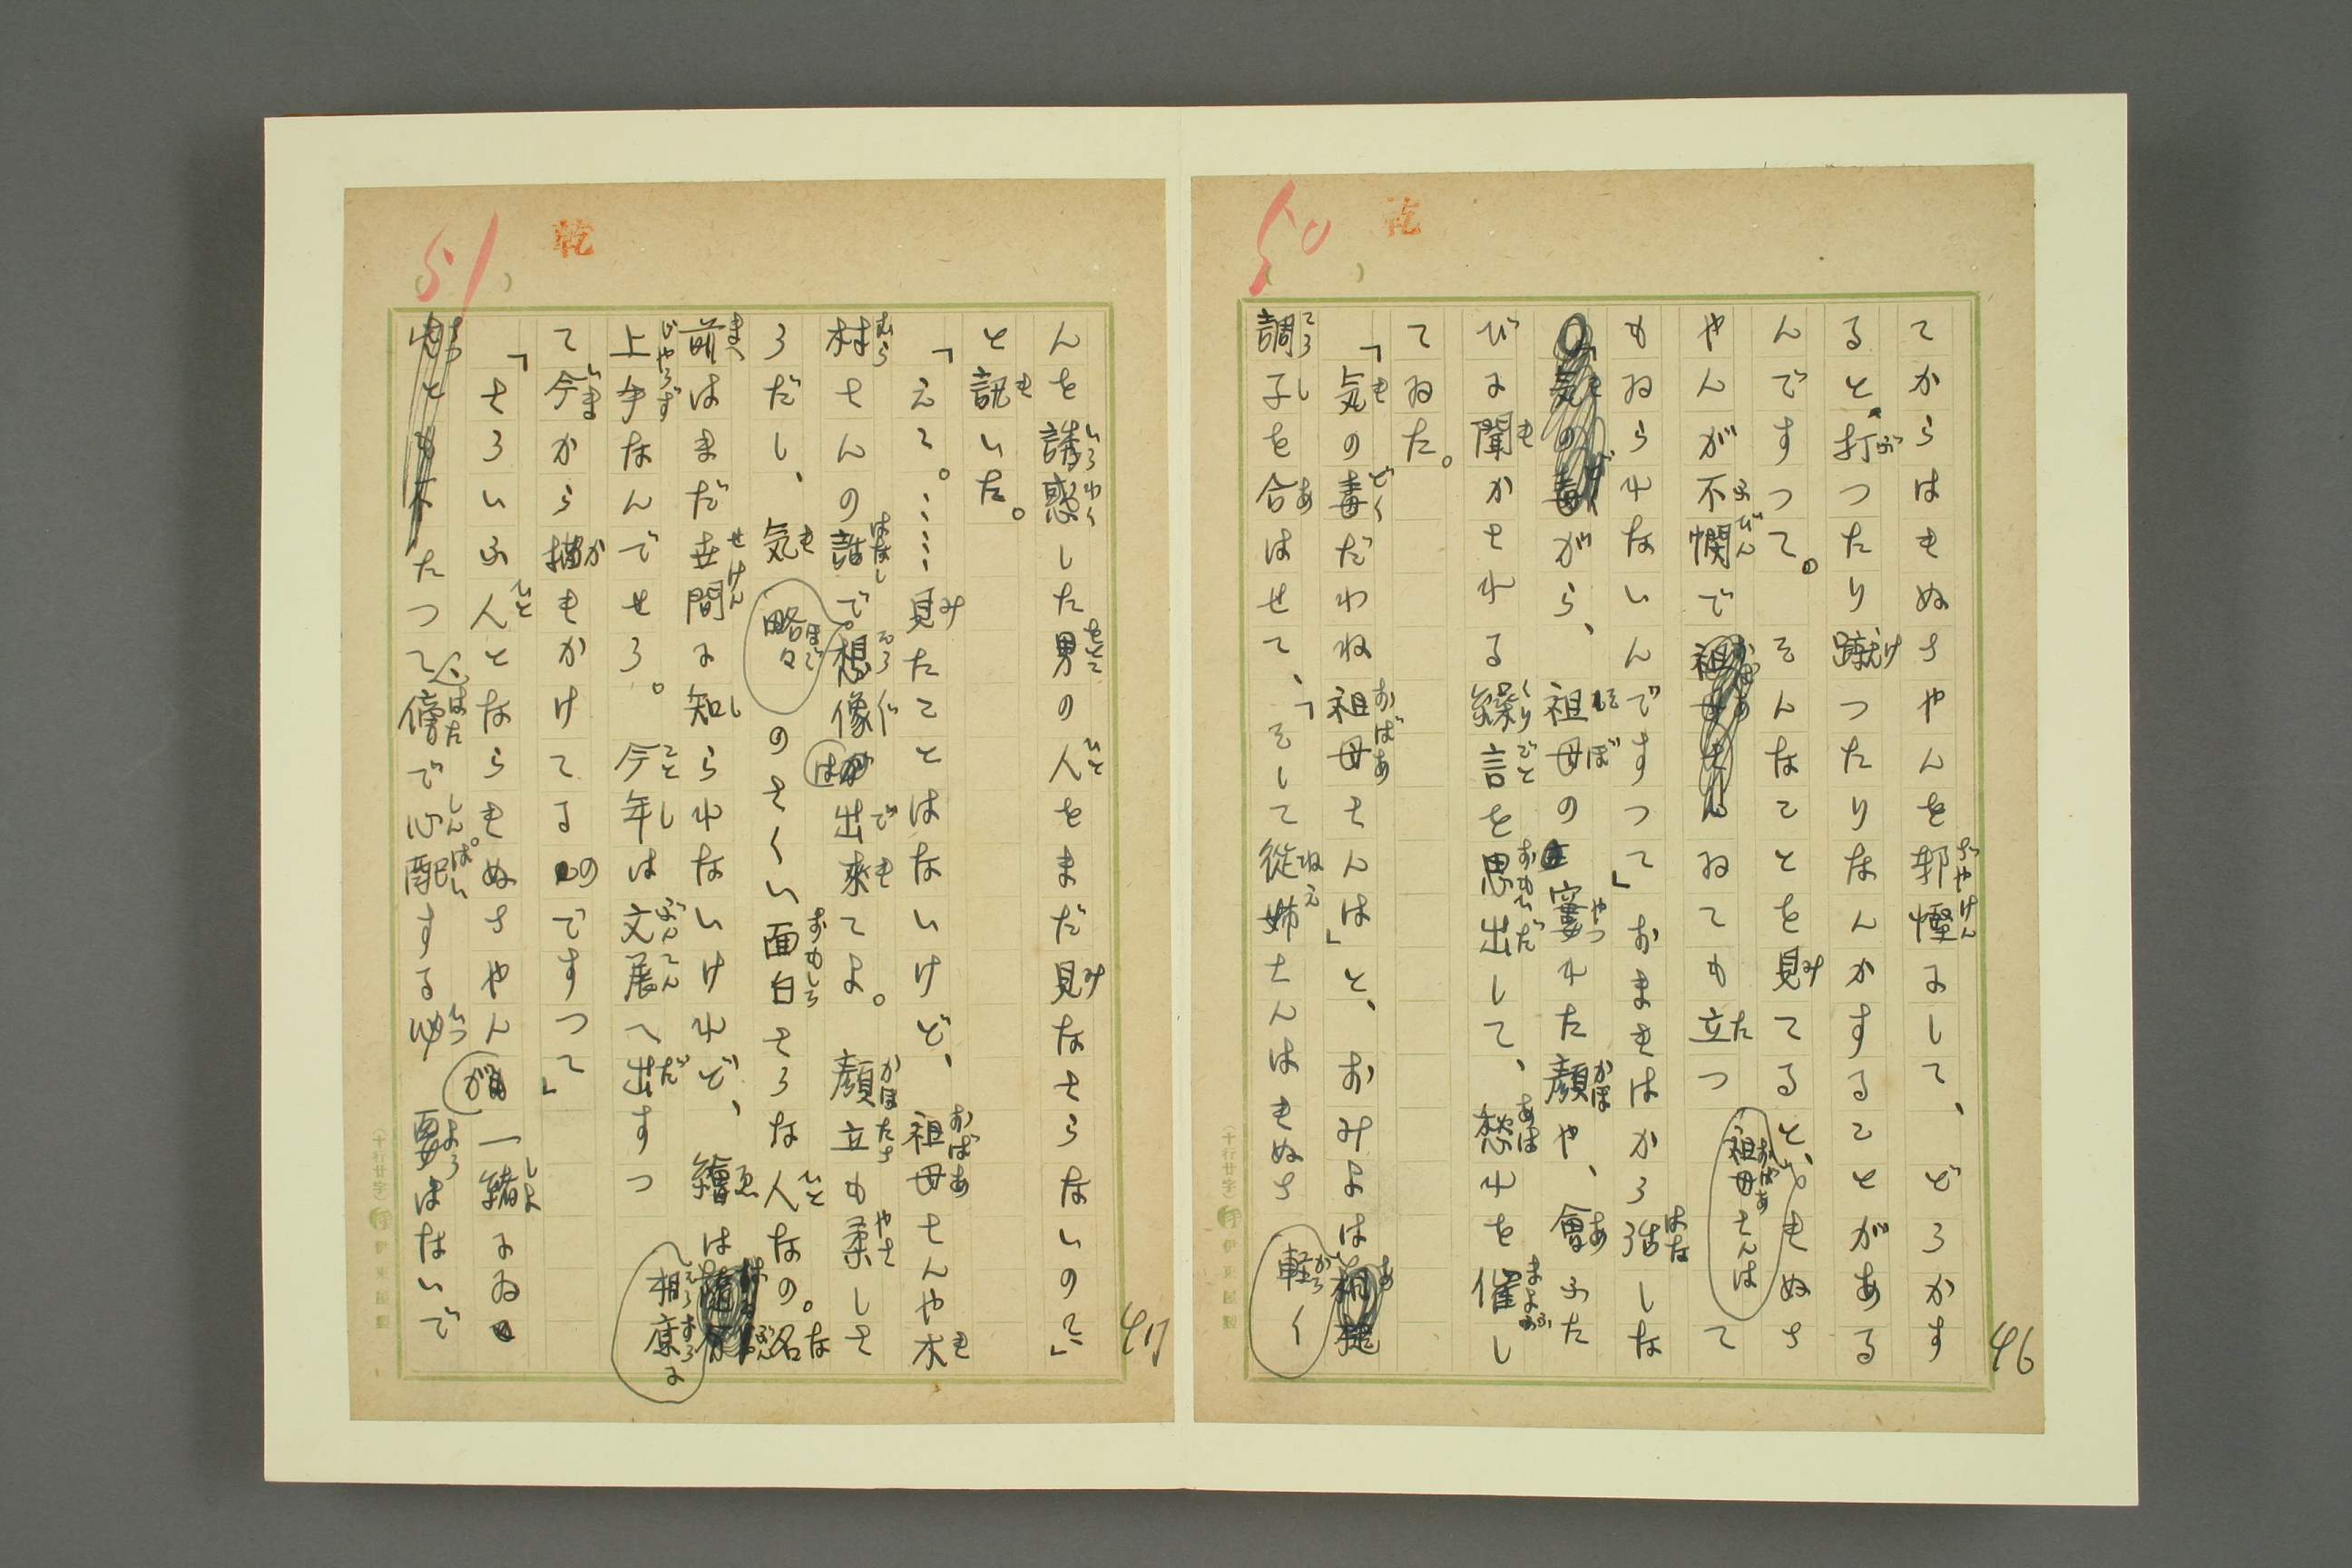 46
50
乾
てからはきぬちやんを邪慳にして、どうかす
るとぶつたり蹴つたりなんかすることがある
んですつて。そんなことを見てると、きぬち
やんが不憫で祖母さんは、ゐても立つて
もゐられないんですつて」おまきはかう話しな
がら、祖母の窶れた顔や、會ふた
びに聞かされる繰言を思出して、愁れを催し
てゐた。
「気の毒だわね祖母さんは」と、おみよは軽く
調子を合はせて、「そして従姉さんはきぬさ
47
51
乾
んを誘惑した男の人をまだ見なさらないの?」
と訊いた。
「えゝ。……見たことはないけど、祖母さんや木
村さんの話で想像は出来てよ。顔立も柔しさ
うだし、気のさくい面白さうな人なの。名
前はまだ世間に知られないけれど、繪は相應に
上手なんでせう。今年は文展へ出すつ
て今から描きかけてるのですつて」
「さういふ人とならきぬさやんが一緒にゐ
たつて傍で心配する必要はないで
(十行廿字)